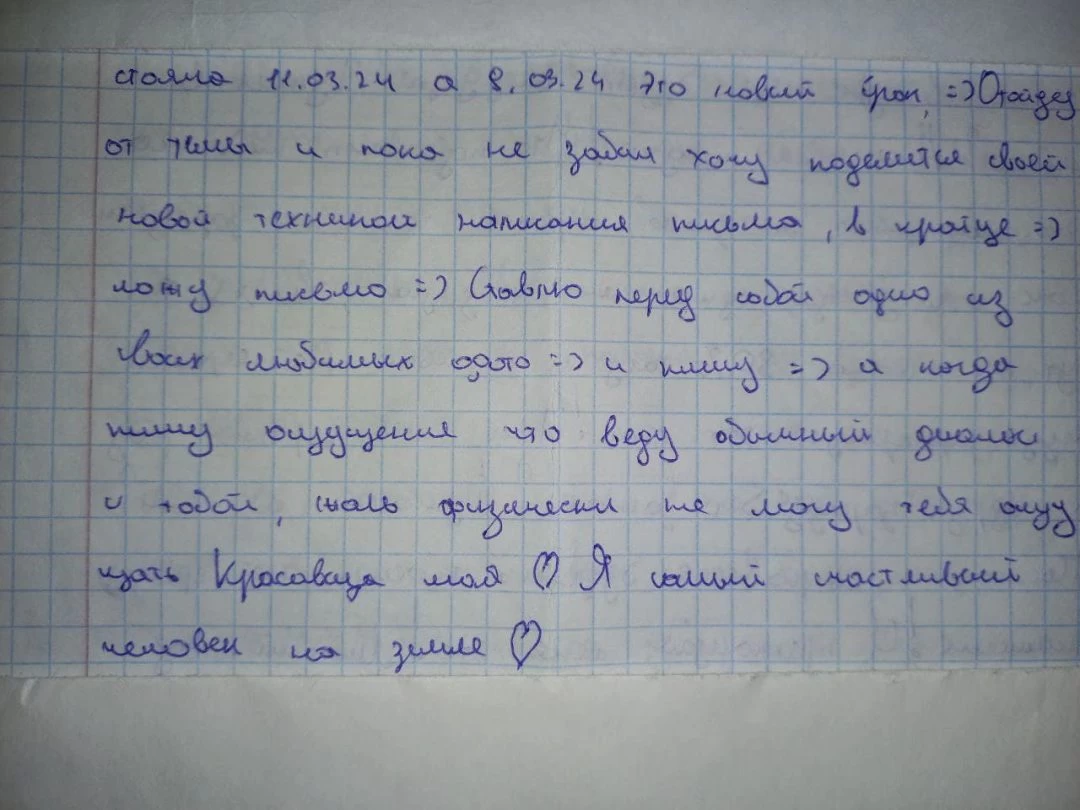 стояло 11.03.24 а 8.03.24 это новый срок, =) Отойду
от темы и пока не забыл хочу поделится своей
новой техникой написания письма, в кратце =)
ложу письмо =) Ставлю перед собой одно из
твоих любимых фото =) и пишу =) а когда
пишу ощущения что веду обычный диалог
с тобой, жаль физически не могу тебя ощу
щать Красавица моя ♡ Я самый счастливый
человек на земле ♡